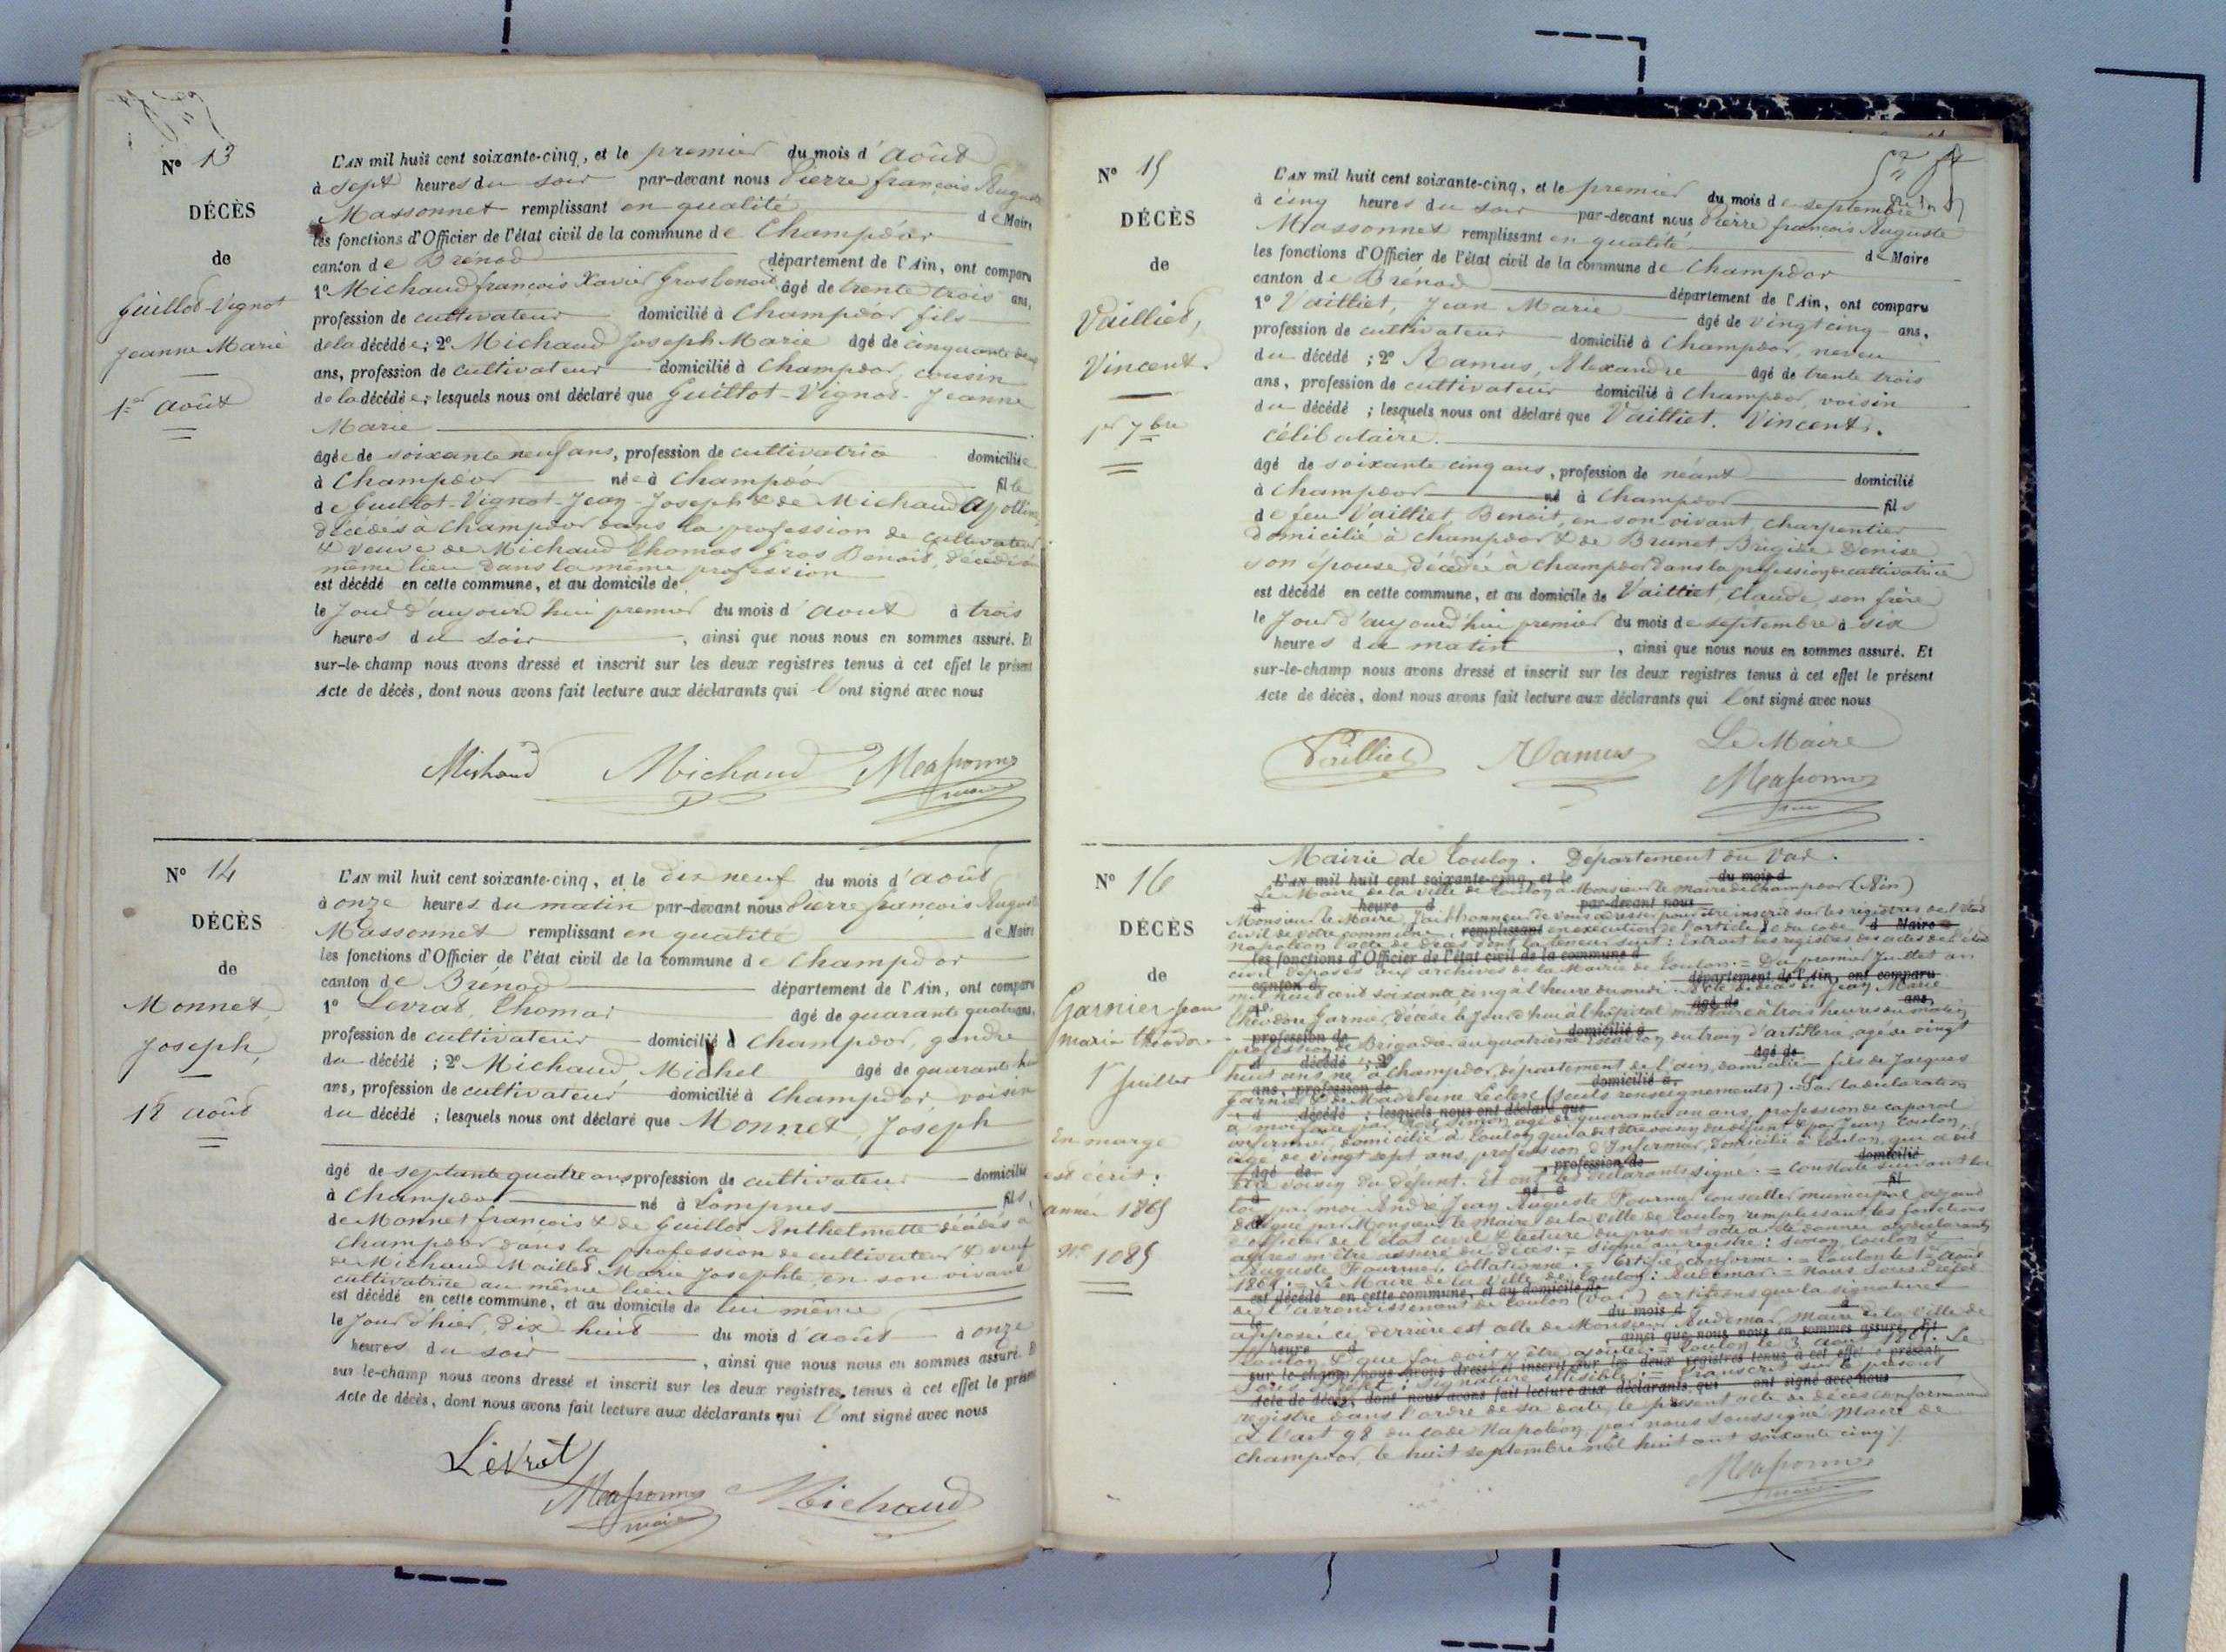 Nº 13
DÉCÈS
de
Guillot-Vignot
Jeanne Marie
1er août
L'AN mil huit cent soixante-cinq, et le premier du mois d'août
à sept heures du soir par-devant nous Pierre françois Auguste
Massonnet remplissant en qualité de Maire
les fonctions d'Officier de l'état civil de la commune de Champdor
canton de Brénod département de l'Ain, ont comparu
1º Michaud françois Xavier Gros benoit âgé de trente trois ans,
profession de cultivateur domicilié à Champdor fils
de la décédée; 2º Michaud Joseph Marie âgé de cinquante deux
ans, profession de cultivateur domicilié à Champdor, cousin
de la décédée; lesquels nous ont déclaré que Guillot-Vignot-Jeanne
Marie
âgée de soixante neuf ans, profession de cultivatrice domiciliée
à Champdor née à Champdor fille
de Guillot-Vignot-Jean-Joseph & de Michaud Apolline,
décédés à Champdor dans la profession de cultivateur
& veuve de Michaud Thomas Gros Benoit, décédé au
même lieu dans la même profession
est décédé en cette commune, et au domicile de
le Jour d'aujourd'hui premier du mois d'août à trois
heures du soir, ainsi que nous nous en sommes assuré. Et
sur-le-champ nous avons dressé et inscrit sur les deux registres tenus à cet effet le présent
Acte de décès, dont nous avons fait lecture aux déclarants qui l'ont signé avec nous
Michaud Michaud Massonnet
maire
Nº 14
DÉCÈS
de
Monnet,
Joseph,
18 août
L'AN mil huit cent soixante-cinq, et le dix neuf du mois d'août
à onze heures du matin par-devant nous Pierre françois Auguste
Massonnet remplissant en qualité de Maire
les fonctions d'Officier de l'état civil de la commune de Champdor
canton de Brénod département de l'Ain, ont comparu
1º Levrat, Thomas âgé de quarante quatre ans,
profession de cultivateur domicilié à Champdor, gendre
du décédé; 2º Michaud Michel âgé de quarante huit
ans, profession de cultivateur domicilié à Champdor voisin
du décédé; lesquels nous ont déclaré que Monnet, Joseph
âgé de septante quatre ans profession de cultivateur domicilié
à Champdor né à Lompnes fils
de Monnet françois & de Guillot Anthelmette décédés à
Champdor dans la profession de cultivateur & veuf
de Michaud Maillet Marie Josephte, en son vivant
cultivatrice au même lieu
est décédé en cette commune, et au domicile de lui même
le Jour d'hier, dix huit du mois d'août à onze
heures du soir, ainsi que nous nous en sommes assuré. Et
sur le-champ nous avons dressé et inscrit sur les deux registres tenus à cet effet le présent
Acte de décès, dont nous avons fait lecture aux déclarants qui l'ont signé avec nous
Levrat
Massonnet Michaud
maire
Nº 15
DÉCÈS
de
Vailliet,
Vincent.
1er 7bre
L'AN mil huit cent soixante-cinq, et le premier du mois de septembre
à cinq heures du soir par-devant nous Pierre françois Auguste
Massonnet remplissant en qualité de Maire
les fonctions d'Officier de l'état civil de la commune de Champdor
canton de Brénod département de l'Ain, ont comparu
1º Vailliet, Jean Marie âgé de vingt cinq ans,
profession de cultivateur domicilié à Champdor, neveu
du décédé; 2º Ramus, Alexandre âgé de trente trois
ans, profession de cultivateur domicilié à Champdor, voisin
du décédé; lesquels nous ont déclaré que Vailliet. Vincent.
célibataire.
âgé de soixante cinq ans, profession de néant domicilié
à Champdor né à Champdor fils
de feu Vailliet Benoit, en son vivant, charpentier
domicilié à Champdor & de Brunet Brigitte Denise
son épouse, décédée à Champdor dans la profession de cultivatrice
est décédé en cette commune, et au domicile de Vailliet Claude, son frère
le Jour d'aujourd'hui premier du mois de septembre à six
heures du matin, ainsi que nous nous en sommes assuré. Et
sur-le-champ nous avons dressé et inscrit sur les deux registres tenus à cet effet le présent
Acte de décès, dont nous avons fait lecture aux déclarants qui l'ont signé avec nous
Le Maire
Vailliet Ramus Massonnet
Nº 16
DÉCÈS
de
Garnier Jean
marie théodore
1er Juillet
En marge
est écrit:
année 1865
Nº 1085
Mairie de Toulon. Département du Var.
Le Maire de la ville de Toulon à Monsieur le maire de Champdor (Ain)
Monsieur le Maire, J'ai l'honneur de vous adresser pour être inscrit sur les registres de l'état
civil de votre commune, en exécution de l'article du code
napoléon l'acte de décès dont la teneur suit: extrait des registres des actes de l'état
civil déposés aux archives de la Mairie de Toulon. = Du premier Juillet an
mil huit cent soixante cinq à l'heure de midi. Acte de décès de Jean Marie
théodore Garnier, décédé le Jour d'hui à l'hôpital militaire à trois heures du matin
profession de Brigadier au quatrième Escadron du train d'artillerie, âgé de vingt
huit ans, né à Champdor, département de l'ain, domicilié fils de Jacques
Garnier & de Madeleine Leclerc (seuls renseignements). Par la déclaration
à moi faite par Simon, âgé de quarante un ans, profession de caporal
infirmier, domicilié à Toulon, qui a dit être voisin du défunt & par Jean Coulon,
âgé de vingt sept ans, profession d'Infirmier, domicilié à Toulon, qui a dit
être voisin du défunt. Et ont les déclarants signé. = Constaté suivant la
loi par moi André Jean Auguste Fournier conseiller municipal ayant
délégué par Monsieur le Maire de la Ville de Toulon remplissant les fonctions
d'officier de l'état civil & lecture du présent acte a été donnée aux déclarants
après m'être assuré du décès. = Signé au registre: Simon, Coulon &
Auguste Fournier. Collationné. = Certifié conforme. = Toulon le 1er août
1865. = Le Maire de la Ville de Toulon: Audemar. = Nous Sous Préfet
de l'arrondissement de Toulon (Var) certifions que la signature
apposée ci derrière est celle de Monsieur Audemar, Maire de la Ville de
Toulon, & que foi doit y être ajoutée. = Toulon le 3 août 1865. Le
Sous Préfet: signature illisible. = Transcrit sur le présent
registre dans l'ordre de sa date, le présent acte de décès conformément
à l'art 98 du code Napoléon par nous soussigné Maire de
Champdor, le huit septembre mil huit cent soixante cinq
Massonnet
maire